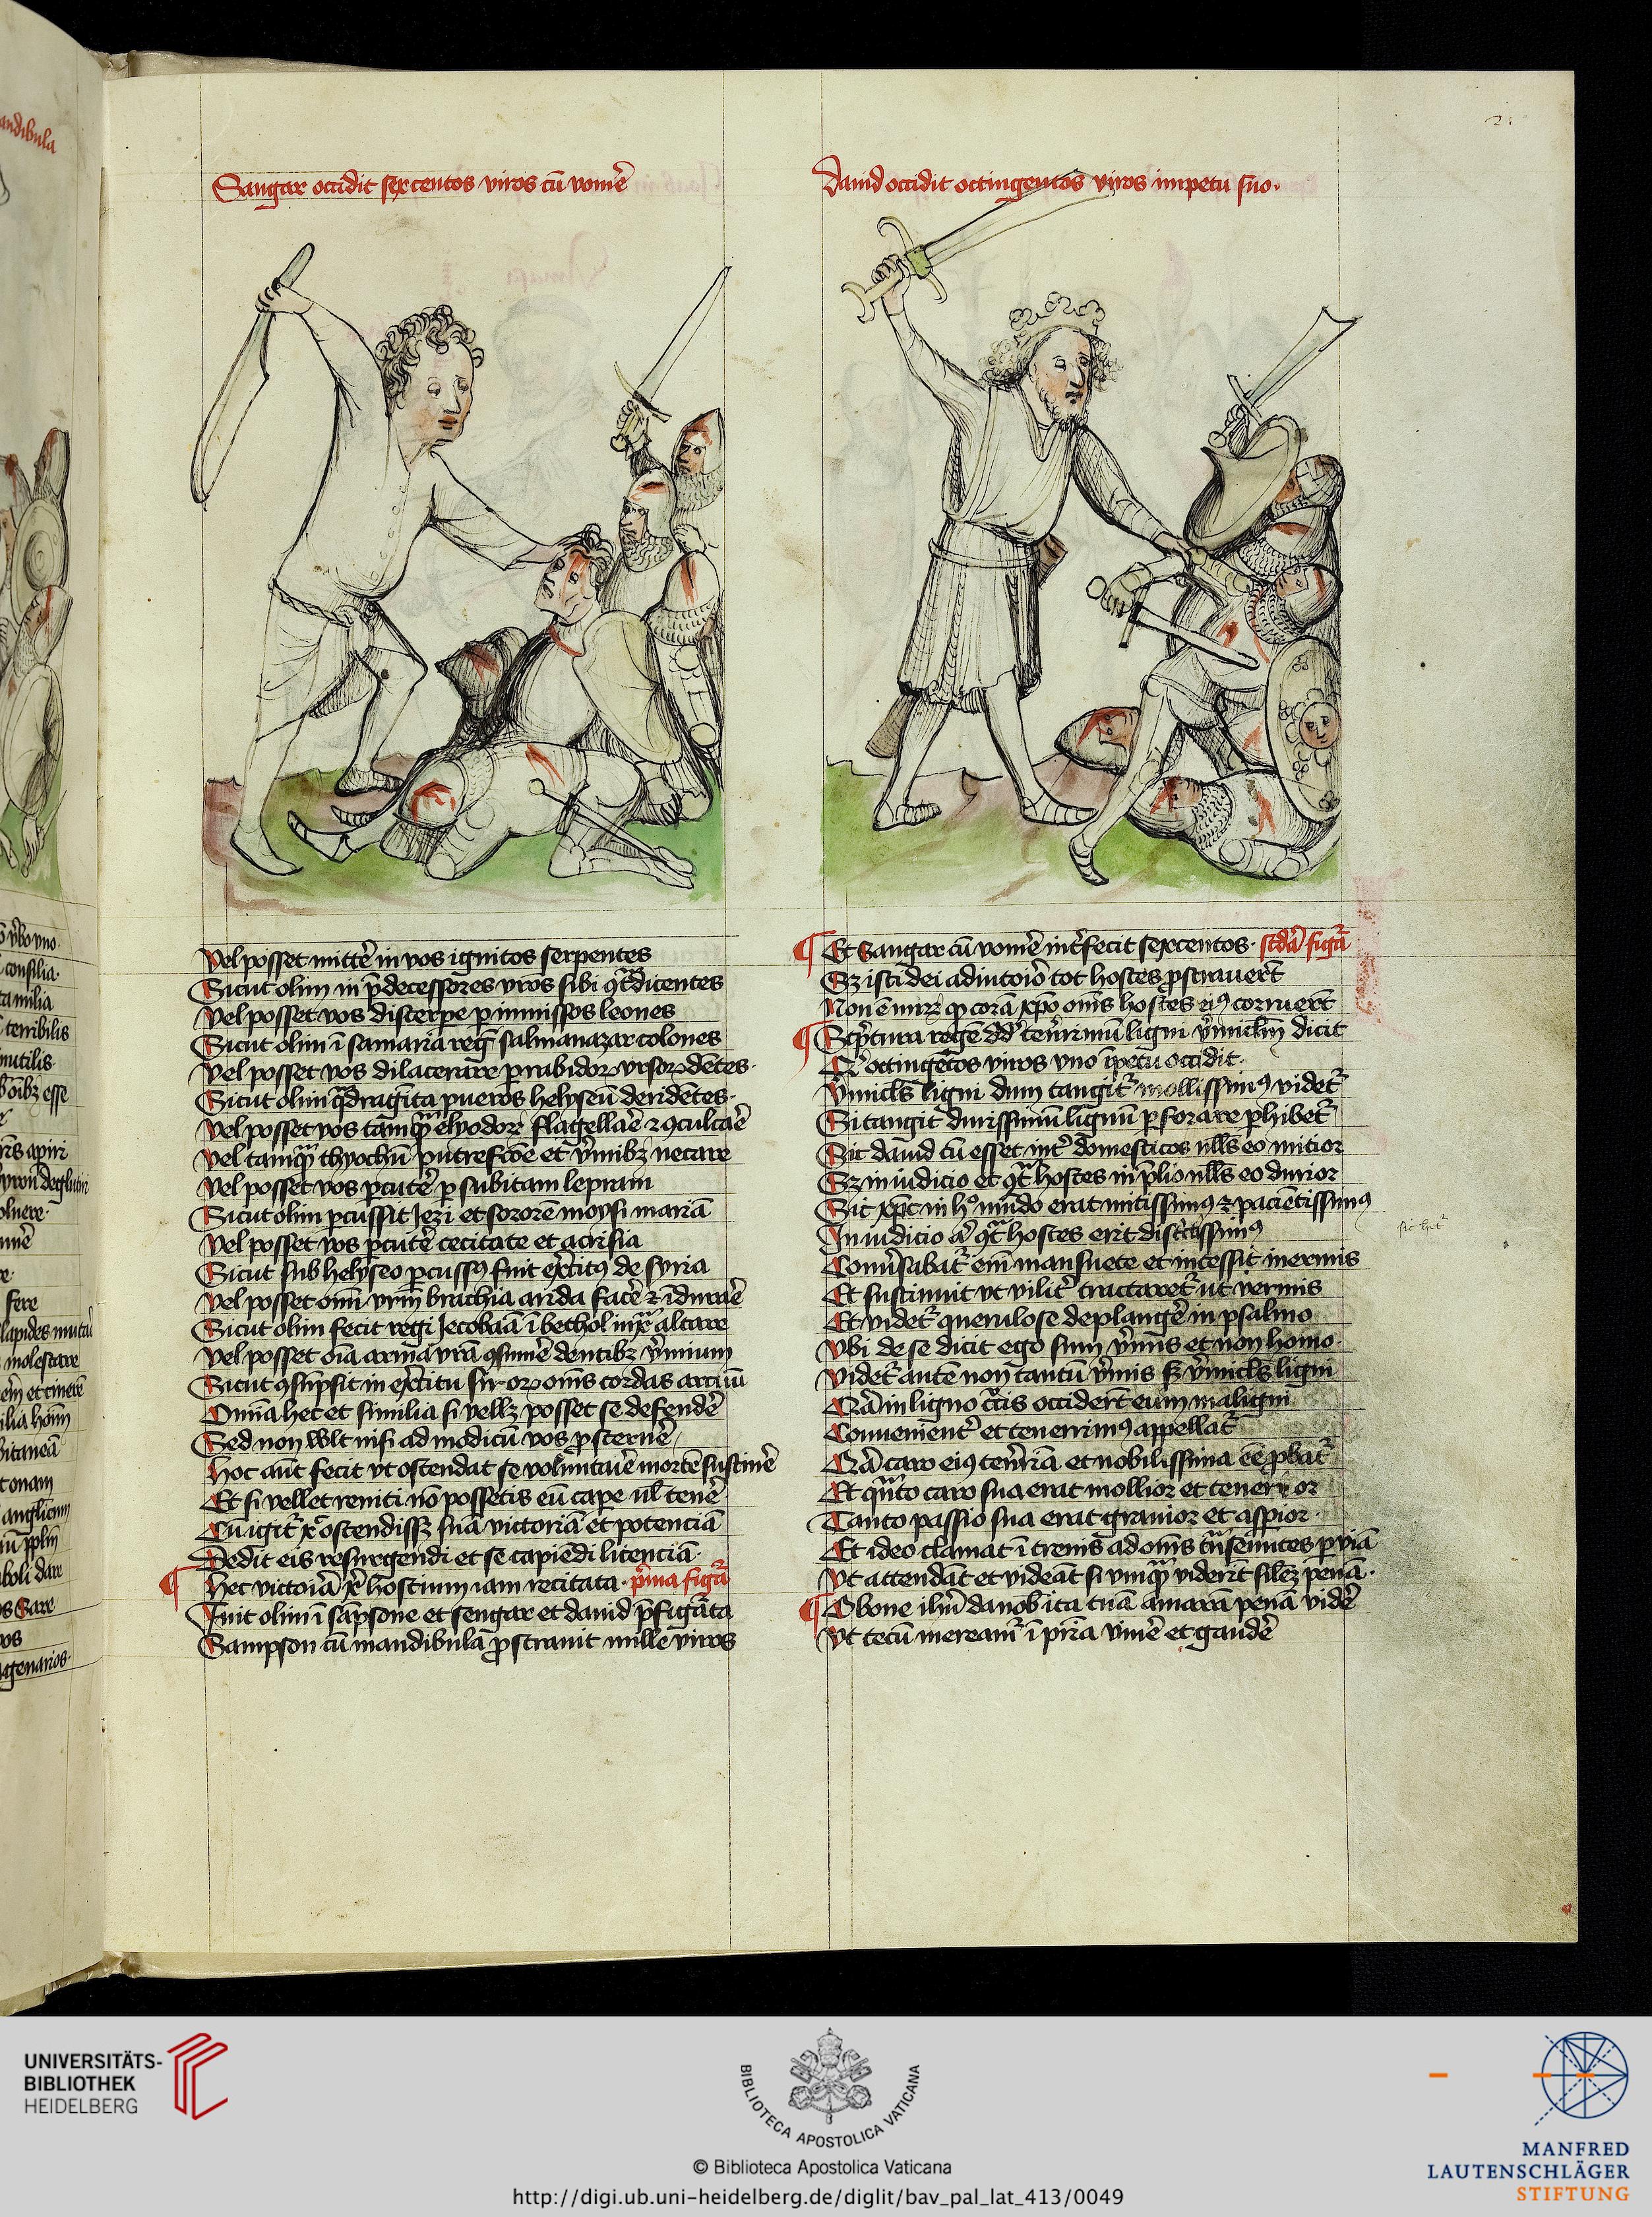 Sangar occidit sexcentos viros cū vom̄e
Vel posset mitt̄e in vos ignitos serpentes
Sicut olim in p̄decessores vr̄os sibi ꝯt̄dicentes
Vel posset vos discerpe p inmissos leones
Sicut olim ī samaria reḡ salmanazar colones
Vel posset vos dilacerare p rabidoꝝ vrsoꝝ dētes
Sicut olim q̄dragīta pueros helyseū deridētes
Vel posset vos tamq̄ elyodoꝝ flagellāe ⁊ ꝯculcāe
Vel tamq̄ thyochū putrefcōe et v̄mibꝫ necare
Vel posset vos ꝑcut̄e ꝑ subitam lepram
Sicut olim ꝑcussit Jezi et sororē moysi mariā
Vel posset vos ꝑcut̄e cecitate et acrisia
Sicut sub helyseo ꝑcussꝰ fuit ex̄citꝰ de syria
Vel posset om̄i vr̄m brachia arida fac̄e ⁊ īdurāe
Sicut olim fecit regi Jecoboā ī bethol iux̄ altare
Vel posset oīa arma vr̄a ꝯsum̄e dentibꝫ v̄mium
Sicut ꝯsūpsit in ex̄citu siroꝝ om̄s cordas arcuū
Omīa hec et similia si vellꝫ posset se defend̄e
Sed non wlt nisi ad modicū vos ꝓstern̄e
Hoc aūt fecit vt ostendat se volūntāe mortē sustin̄e
Et si vellet reniti nō possetis eū cape ul̄ ten̄e
Cū igit̄ xꝰ ostendissꝫ suā victoriā et potenciā
Dedit eis resurgendi et se capiēdi licenciā
Hec victoria xp̄i hostium iam recitata p̄ma fig̃a
Fuit olim ī sāpsone et sengar et dauid p̄fig̃ata
Sampson cū mandibula ꝓstrauit mille viros
Dauid occidit octingentos viros impetu suo
Et Sangar cū vom̄e int̄fecit sexcentos sc̄dā fig̃a
Sꝫ isti dei adiutoīo tot hostes ꝓstrauer̄t
Non ē mirꝫ ꝙ corā xp̄o om̄s hostes eiꝰ corruer̄t
Scp̄tura regē dd̄ ten̄rimū ligni v̄miculm̄ dicit
Qͥ octingētos viros vno īpetu occidit
V̄micls̄ ligni dum tangit̄ mollissimꝰ videt̄
Si tangit durissimū lignū ꝑforare ꝑhibet̄
Sic dauid cū esset int̄ domesticos nlls̄ eo mitior
Sꝫ in iudicio et ꝯt̄ hostes in p̄lio nlls̄ eo durior
Sic xp̄c in hͦ mūdo erat mitissimꝰ ⁊ paciētissimꝰ
In iudicio aͥ ꝯt̄ hostes erit distc̄tissimꝰ
Conūsabat̄ em̄ mansuete et incessit inermis
Et sustinuit vt vilit̄ tractaret̄ ut vermis
Et videt̄ querulose deplanḡe in psalmo
Vbi de se dicit ego sum v̄mis et non homo
Videt̄ autē non tantū v̄mis sꝫ v̄micls̄ ligni
Qām in ligno c̄cis occider̄t eum maligni
Conuenient̄ et tenerrimꝰ appellat̄
Qām caro eiꝰ ten̄rīa et nobilissima eē ꝓbat̄
Et q̄nto caro sua erat mollior et tenerior
Tanto passio sua erat grauior et aspior
Et ideo clamat ī trenis ad om̄s t̄nseuntes ꝑ viā
Vt attendāt et videāt si vmq̄ viderīt silēꝫ penā
O bone ihū da nob̄ ita tuā amarā penā vid̄e
Vt tecū meream̄ ī pr̄ia viūe et gaud̄e
andibula
UNIVERSITÄTS-
BIBLIOTHEK
HEIDELBERG
BIBLIOTECA APOSTOLICA VATICANA
© Biblioteca Apostolica Vaticana
http://digi.ub.uni-heidelberg.de/diglit/bav_pal_lat_413/0049
MANFRED
LAUTENSCHLÄGER
STIFTUNG